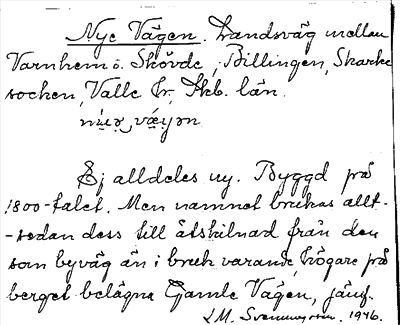 Nye Vägen. Landsväg mellan
Varnhem o. Skövde, Billingen, Skarke
socken, Valle hr, Skb. län.
Ej alldeles ny. Byggd på
1800-talet. Men namnet brukas allt-
-sedan dess till åtskilnad från den
som byväg än i bruk varande, högre på
berget belägna Gamle Vägen, jämf.
1946.